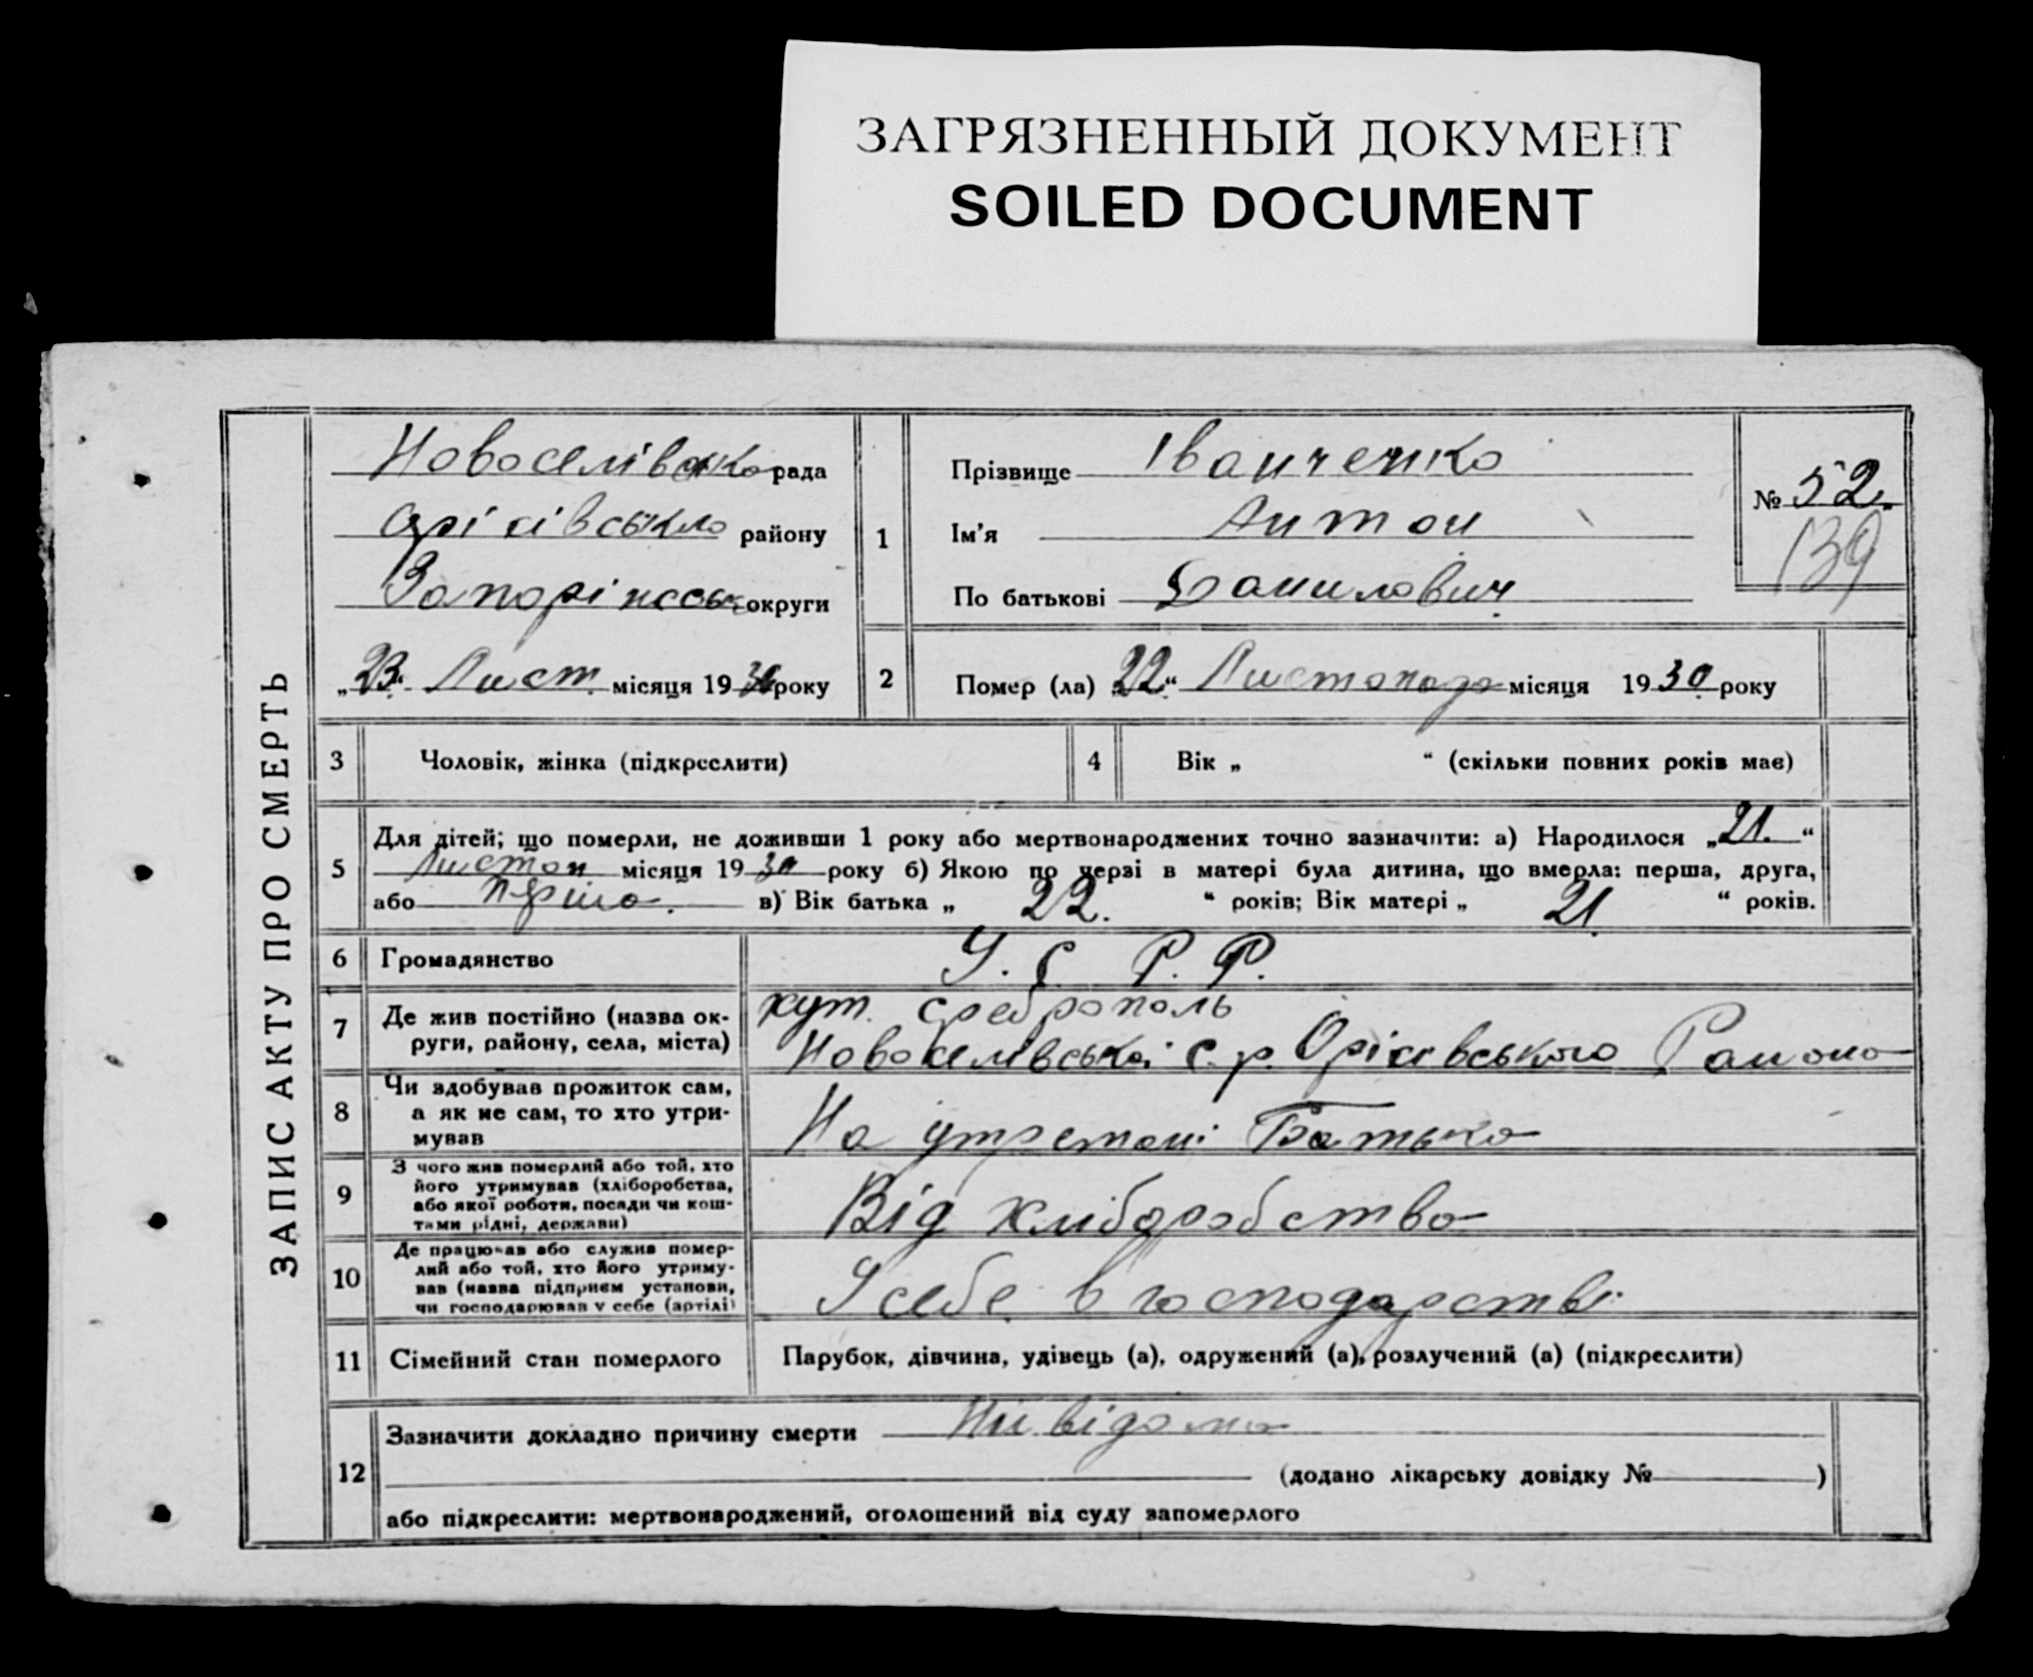 ЗАГРЯЗНЕННЫЙ ДОКУМЕНТ
SOILED DOCUMENT
ЗАПИС АКТУ ПРО СМЕРТЬ
Новоселівська рада
Оріхівського району
Запоріжськ округи
„23“ Лист. місяця 1930 року
1
Прізвище Іванченко
Ім'я Антон
По батькові Данилович
№ 52.
139
2
Помер (ла) „22“ Листопада місяця 1930 року
3 Чоловік, жінка (підкреслити)
4 Вік „ “ (скільки повних років має)
5 Для дітей; що померли, не доживши 1 року або мертвонароджених точно зазначити: а) Народилося „21.“
Листоп місяця 1930 року б) Якою по черзі в матері була дитина, що вмерла: перша, друга,
або перша. в) Вік батька „ 22. “ років; Вік матері „ 21. “ років.
6 Громадянство У. С. Р. Р.
7 Де жив постійно (назва ок-
руги, району, села, міста)
хут. Среброполь
Новоселівської с. р. Оріхівського Району
8 Чи здобував прожиток сам,
а як не сам, то хто утри-
мував
На утремані Батька
9 З чого жив померлий або той, хто
його утримував (хліборобства,
або якої роботи, посади чи кош-
тами рідні, держави)
Від хліборобства
10 Де працював або служив помер-
лий або той, хто його утриму-
вав (назва підприєм установи,
чи господарював у себе (артілі)
У себе в господарстві
11 Сімейний стан померлого Парубок, дівчина, удівець (а), одружений (а), розлучений (а) (підкреслити)
12 Зазначити докладно причину смерти Нивідома
(додано лікарську довідку № )
або підкреслити: мертвонароджений, оголошений від суду запомерлого